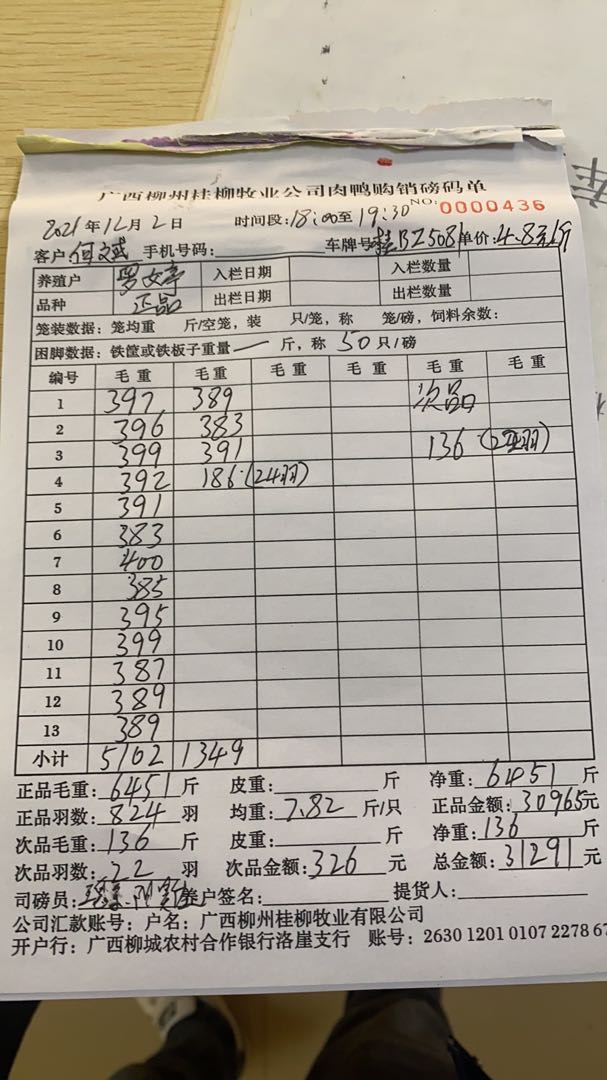 广西柳州桂柳牧业公司肉鸭购销磅码单
2021年12月2日 时间段:18:00至19:30 NO: 0000436
客户:何文斌 手机号码: 车牌号:桂BZ508 单价:4.8
养殖户 入栏日期 入栏数量
品种 正品 出栏日期 出栏数量
笼装数据:笼均重 斤/空笼,装 只/笼,称 笼/磅,饲料余数:
困脚数据:铁筐或铁板子重量 一 斤,称 50 只/磅
编号 毛重 毛重 毛重 毛重 毛重 毛重
1 397 389 次品
2 396 383
3 399 391 136 (22羽)
4 392 186 (24羽)
5 391
6 383
7 400
8 385
9 395
10 399
11 387
12 389
13 389
小计 5102 1349
正品毛重:6451斤 皮重: 斤 净重:6451斤
正品羽数:824羽 均重:7.82斤/只 正品金额:30965元
次品毛重:136斤 皮重: 斤 净重:136斤
次品羽数:22羽 次品金额:326元 总金额:31291元
司磅员: 客户签名: 提货人:
公司汇款账号:户名:广西柳州桂柳牧业有限公司
开户行:广西柳城农村合作银行洛崖支行 账号:2630 1201 0107 2278 67